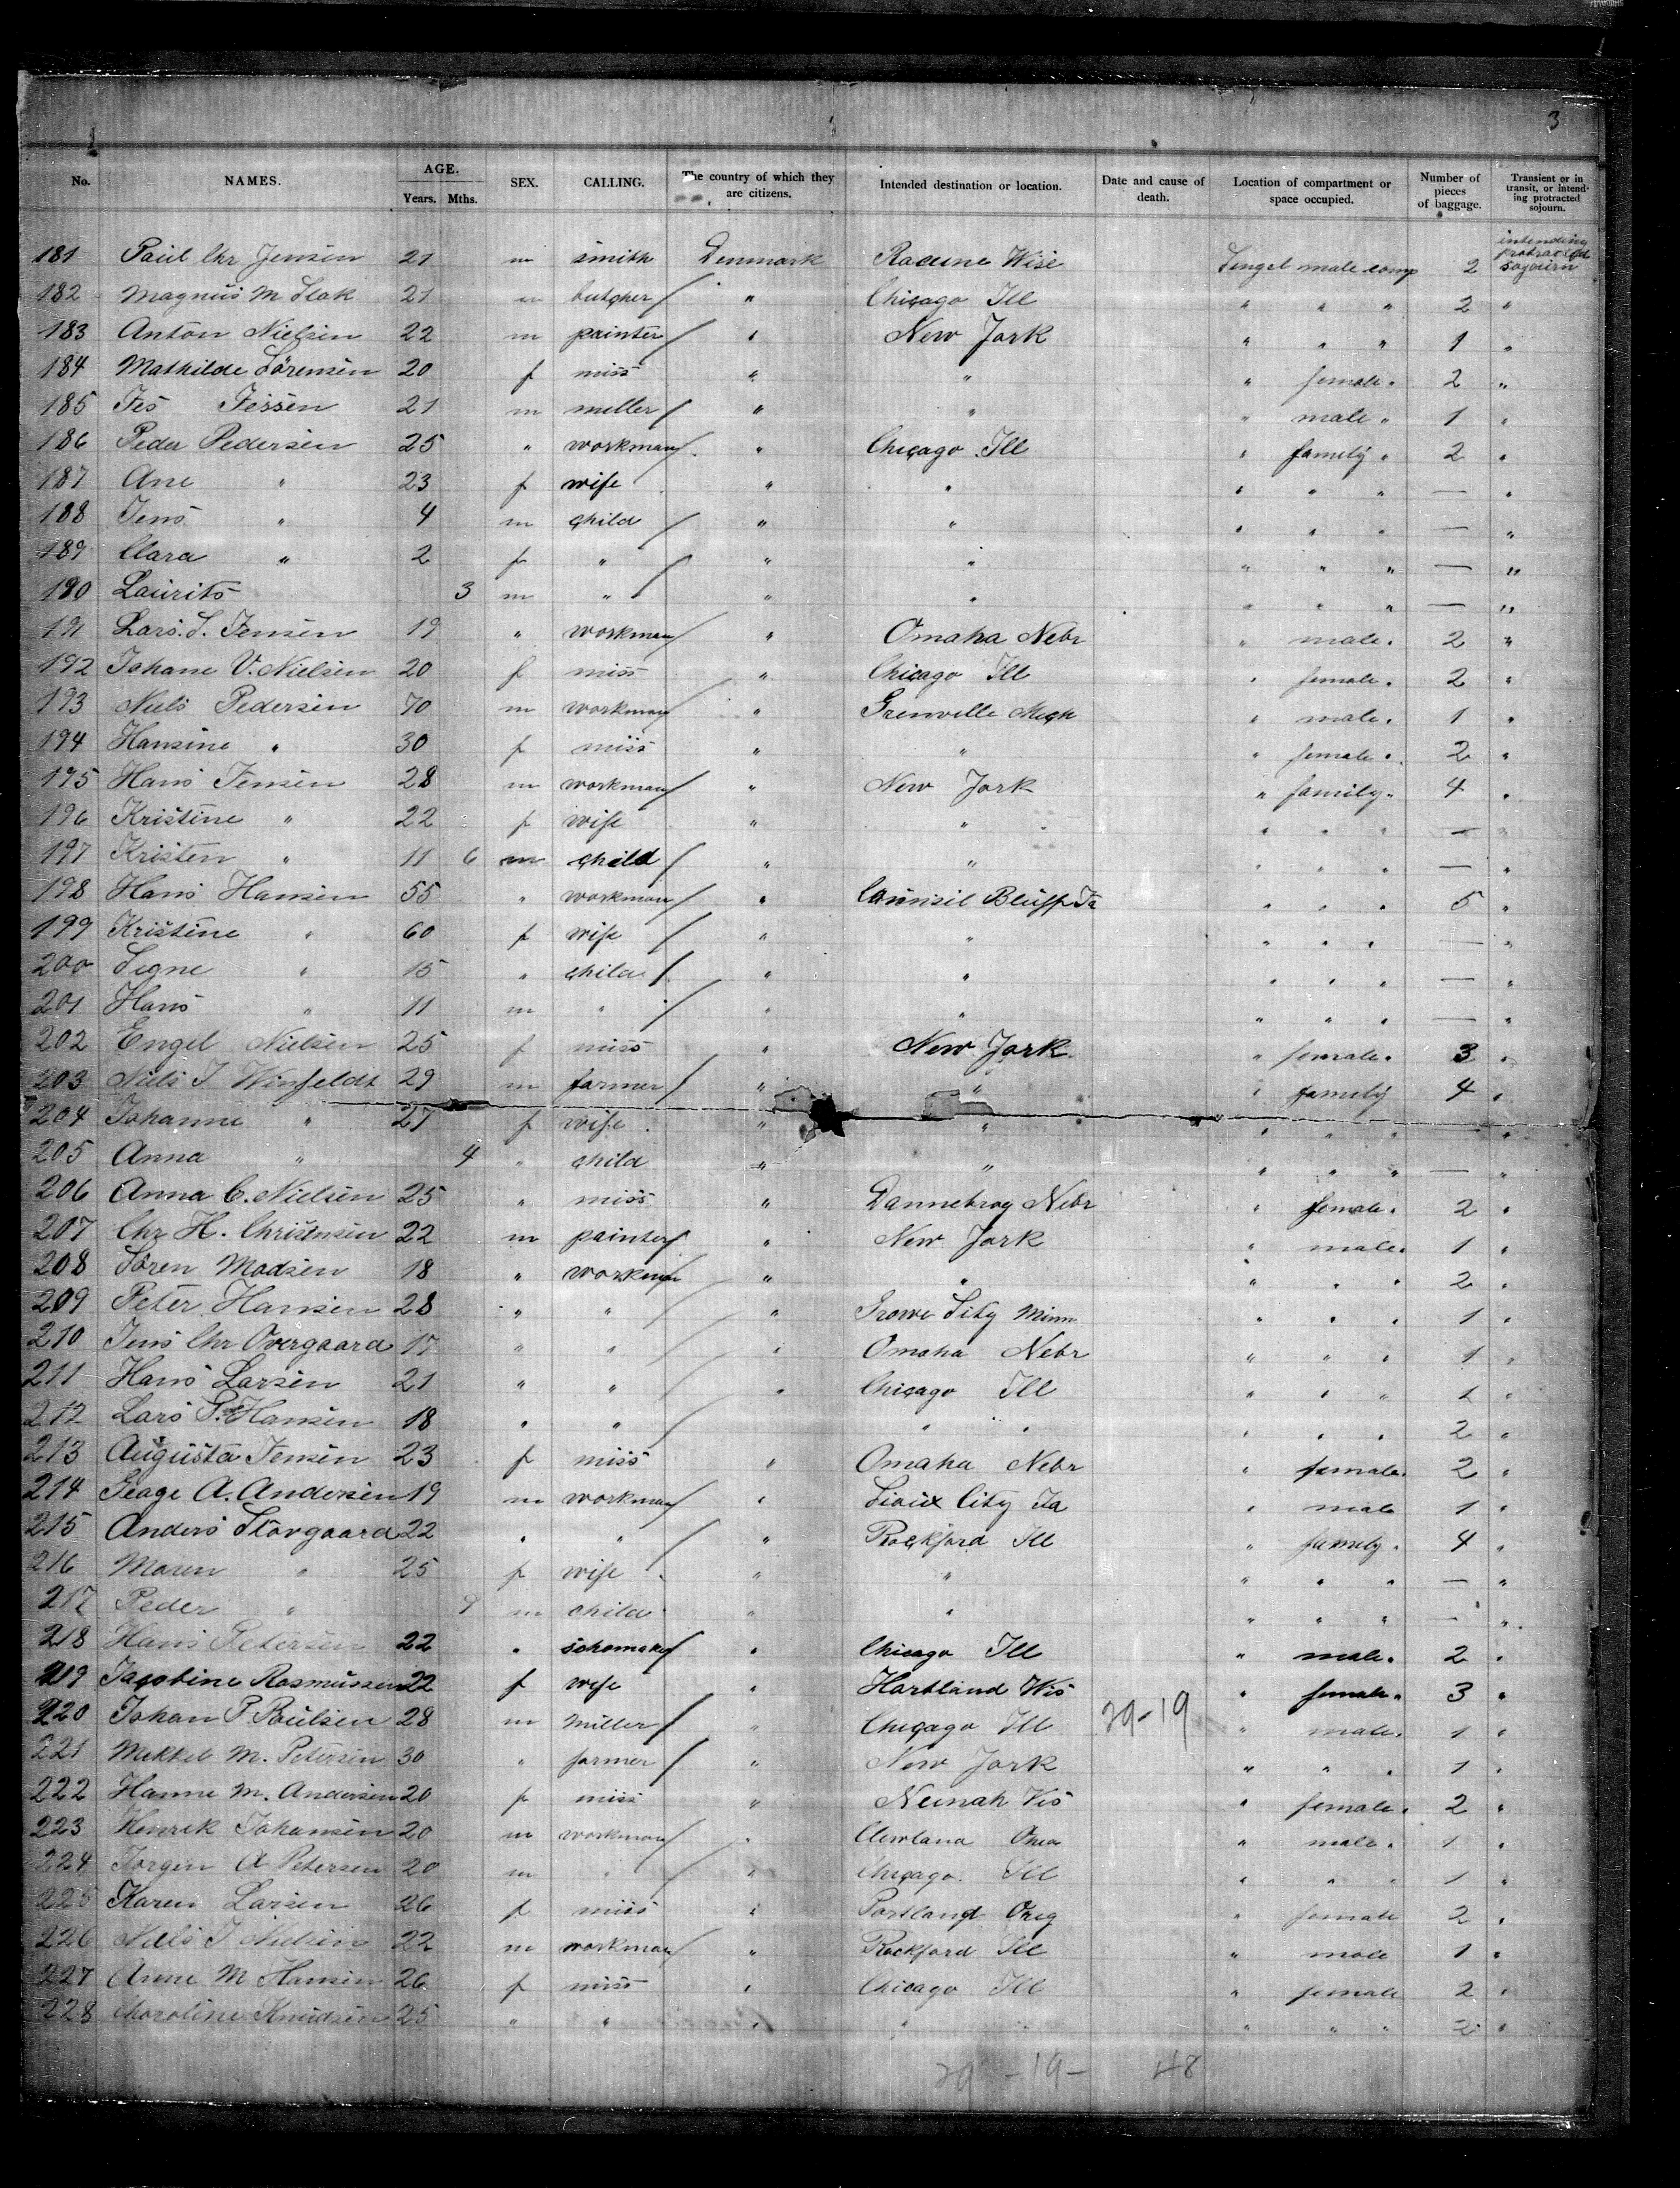 3
No. NAMES. AGE. Years. Mths. SEX. CALLING. The country of which they are citizens. Intended destination or location. Date and cause of death. Location of compartment or space occupied. Number of pieces of baggage. Transient or in transit, or intending protracted sojourn.
181 Paul Chr Jensen 21 m smith Denmark Racune Wise Singel male comp 2 intending protracted sojourn
182 Magnus M Slak 21 m butcher / " Chicago Ill " " " 2 "
183 Anton Nielsen 22 m painter / " New Jork " " " 1 "
184 Mathilde Sörensen 20 f miss " " " female " 2 "
185 Jes Jessen 21 m meller / " " " male " 1 "
186 Peder Pedersen 25 " workman / " Chicago Ill " family " 2 "
187 Ane " 23 f wife " " " " " — "
188 Jens " 4 m child / " " " " " — "
189 Clara " 2 f " / " " " " " — "
190 Laurits 3 m " / " " " " " — "
191 Lars. S. Jensen 19 " workman / " Omaha Nebr " male " 2 "
192 Johane V. Nielsen 20 f miss " Chicago Ill " female " 2 "
193 Niels Pedersen 70 m workman " Grenville Mich " male " 1 "
194 Hansine " 30 f miss " " " female " 2 "
195 Hans Jensen 28 m workman / " New Jork " family " 4 "
196 Kristine " 22 f wife " " " " " — "
197 Kristen " 11 6 m child / " " " " " — "
198 Hans Hansen 55 " workman / " Counsil Bluff Ia " " " 5 "
199 Kristine " 60 f wife / " " " " " — "
200 Signe " 15 " child / " " " " " — "
201 Hans " 11 m " / " " " " " — "
202 Engel Nielsen 25 f miss " New Jork " female " 3 "
203 Niels J Winfeldt 29 m farmer / " " " family 4 "
204 Johanne " 27 f wife " " " " " — "
205 Anna " 4 " child " " " " " — "
206 Anna C. Nielsen 25 " miss " Dannebrog Nebr " female " 2 "
207 Chr H. Christensen 22 m painter / " New Jork " male " 1 "
208 Sören Madsen 18 " workman / " " " " " 2 "
209 Peter Hansen 28 " " / " Growe Sity Minn " " " 1 "
210 Jens Chr Overgaard 17 " " / " Omaha Nebr " " " 1 "
211 Hans Larsen 21 " " / " Chicago Ill " " " 1 "
212 Lars P. Hansen 18 " " / " " " " " 2 "
213 Augusta Jensen 23 f miss " Omaha Nebr " female " 2 "
214 Geage A. Andersen 19 m workman / " Sioux City Ia " male 1 "
215 Anders Skovgaard 22 " " / " Rockford Ill " family " 4 "
216 Maren " 25 f wife " " " " " — "
217 Peder " 9 m child " " " " " — "
218 Hans Petersen 22 " schomaker / " Chicago Ill " male " 2 "
219 Jacobine Rasmussen 22 f wife " Hartland Wis " female " 3 "
220 Johan P. Poulsen 28 m miller / " Chicago Ill 29-19 " male " 1 "
221 Mikkel M. Petersen 30 " farmer / " New Jork " " " 1 "
222 Hanne M. Andersen 20 f miss " Neinah Vis " female " 2 "
223 Henrik Johansen 20 m workman / " " male " 1 "
224 Jorgen A Petersen 20 m " / " Chicago. Ill " " " 1 "
225 Karen Larsen 26 f miss " Portland Oreg " female 2 "
226 Niels J Nielsen 22 m workman / " Rockford Ill " male 1 "
227 Anne M Hansen 26 f miss " Chicago Ill " female 2 "
228 Karoline Knudsen 25 " " " " " " " 2 "
29 -19- 48